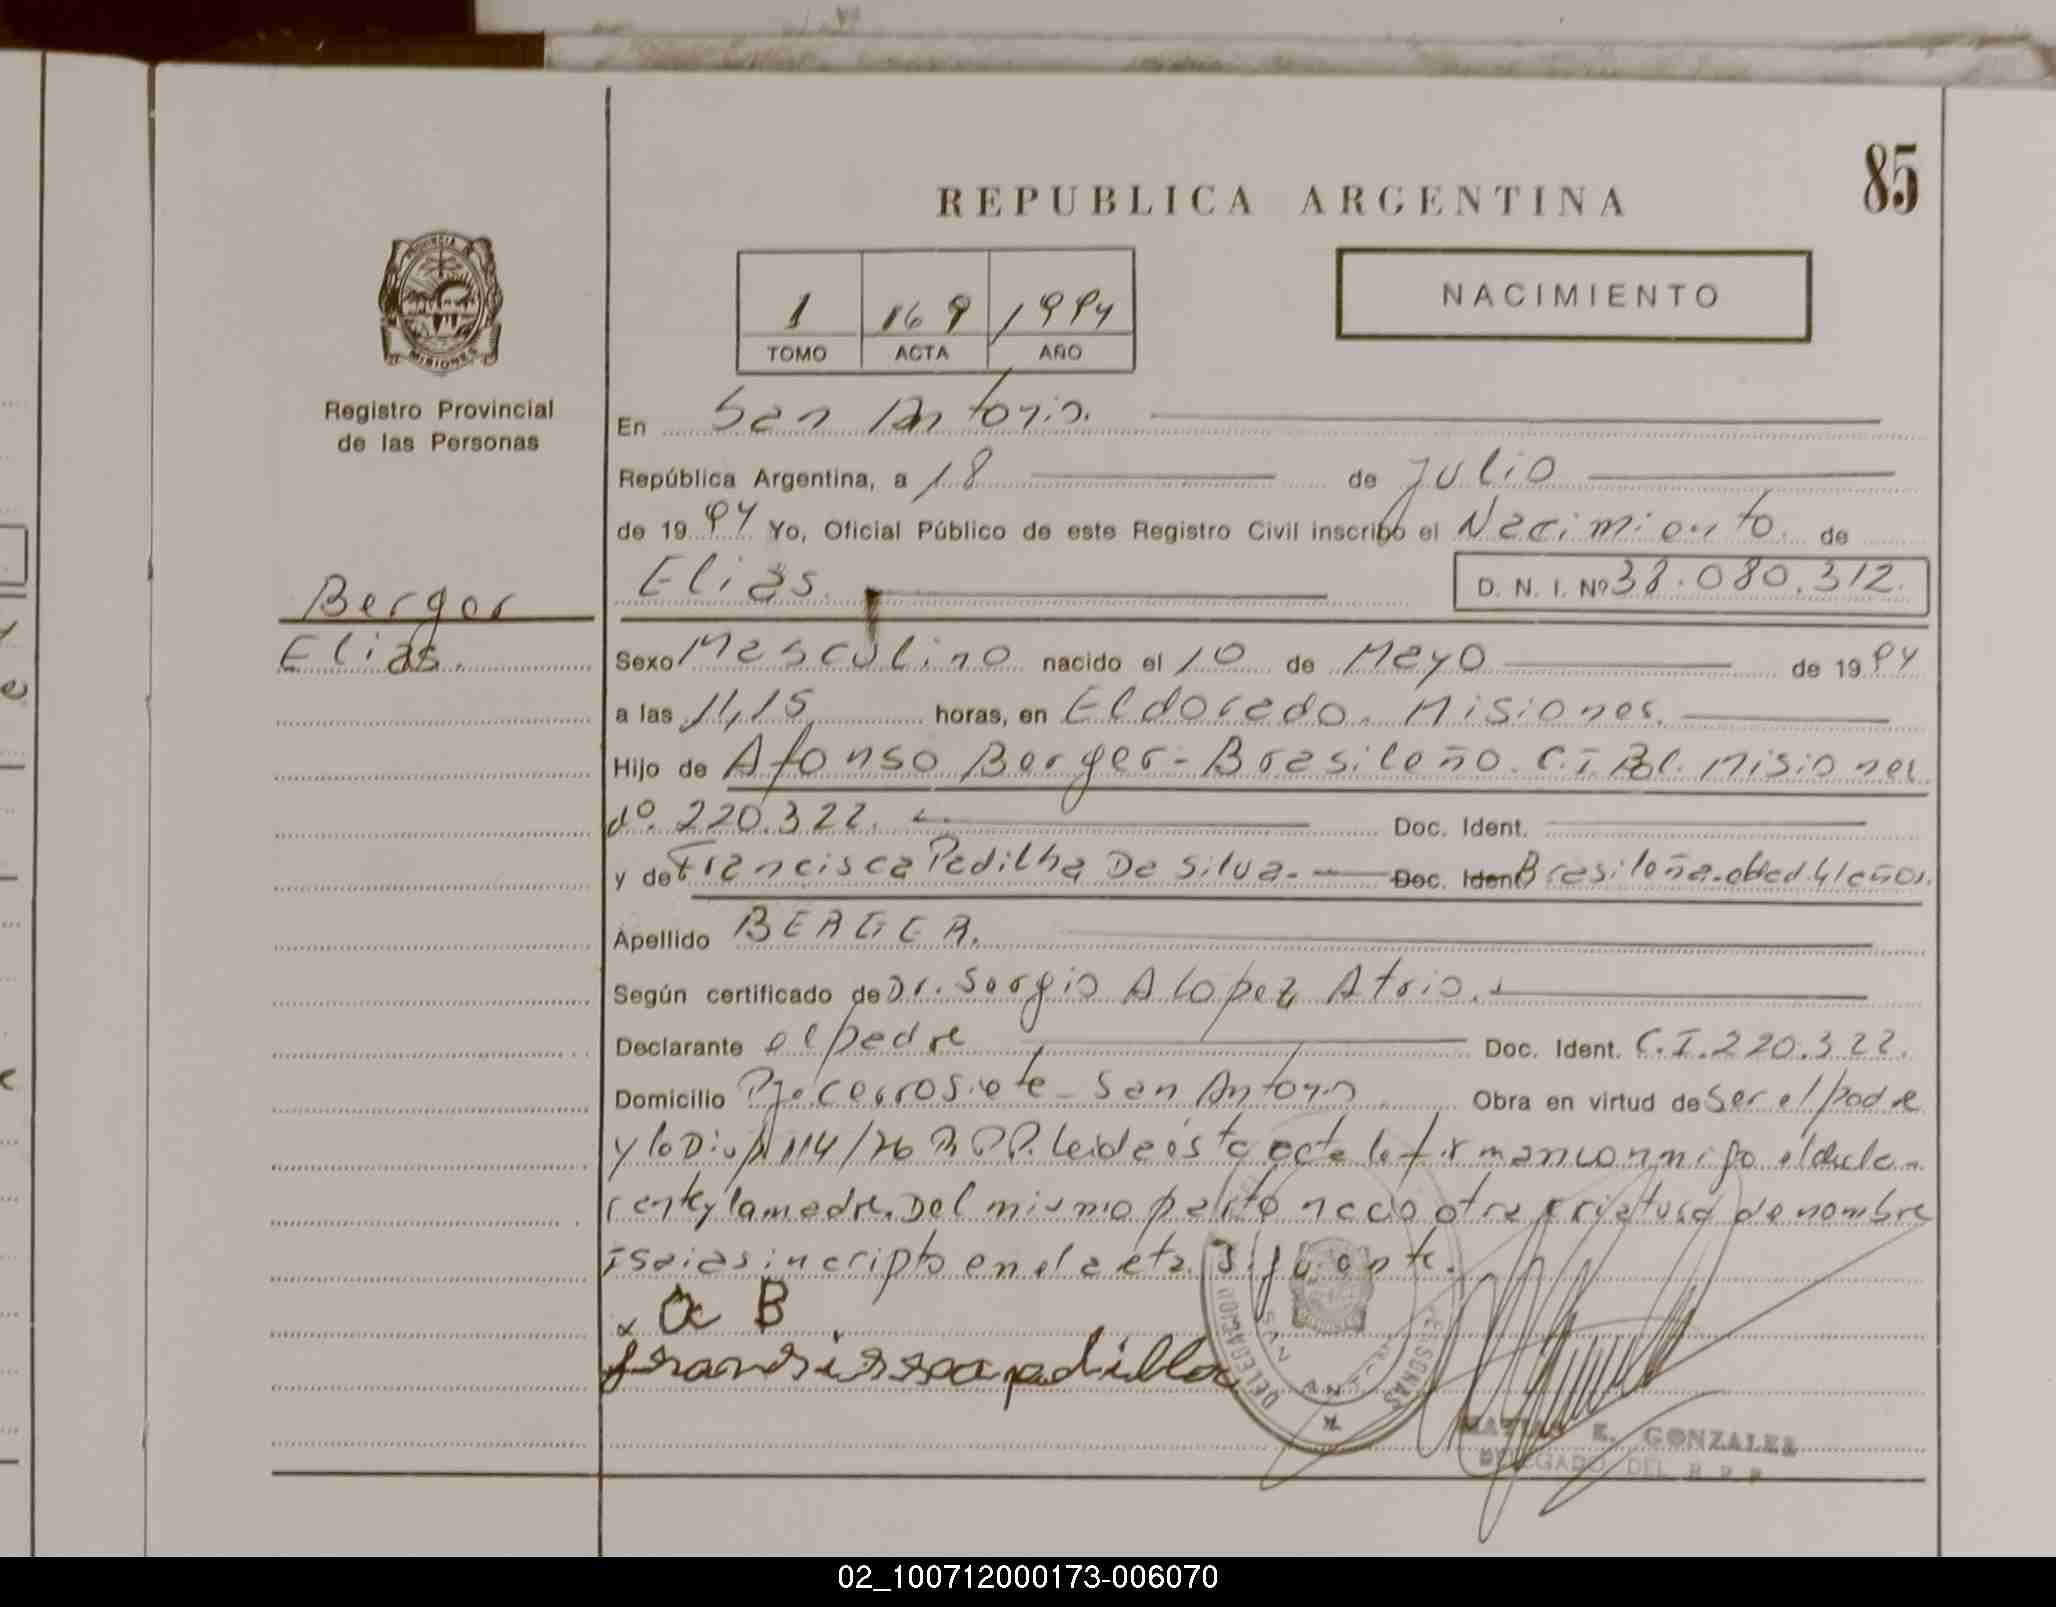 85
REPUBLICA ARGENTINA
PROVINCIA DE MISIONES
1 169 1994
TOMO ACTA AÑO
NACIMIENTO
Registro Provincial
de las Personas
Berger
Elias.
En San Antonio.
República Argentina, a 18 de Julio
de 1994 Yo, Oficial Público de este Registro Civil inscribo el Nacimiento de
Elias. D. N. I. Nº 38.080.312.
Sexo Masculino nacido el 10 de Mayo de 1994
a las 11,15 horas, en Eldorado. Misiones.
Hijo de Afonso Berger - Brasileño. C.I. Pol. Misiones
Nº. 220.322. Doc. Ident.
y de Francisca Padilha De Silva. Doc. Ident Brasileña. edad 41 años.
Apellido BERGER.
Según certificado de Dr. Sergio A Lopez Atrio.
Declarante el padre Doc. Ident. C.I. 220.322.
Domicilio Pje. Cerro Siete - San Antonio Obra en virtud de Ser el padre
y lo Disp 114/76 R.P.P. Leida ésta acta la firman conmigo el decla-
rente y la madre. Del mismo parto nacio otra criatura de nombre
Isaias incripto en el acta siguiente.
x a B
fransissca padilla
DELEGACION PERSONAS
SAN ANTONIO
MATIAS E. GONZALEZ
DELEGADO DEL R. P. P.
02_100712000173-006070